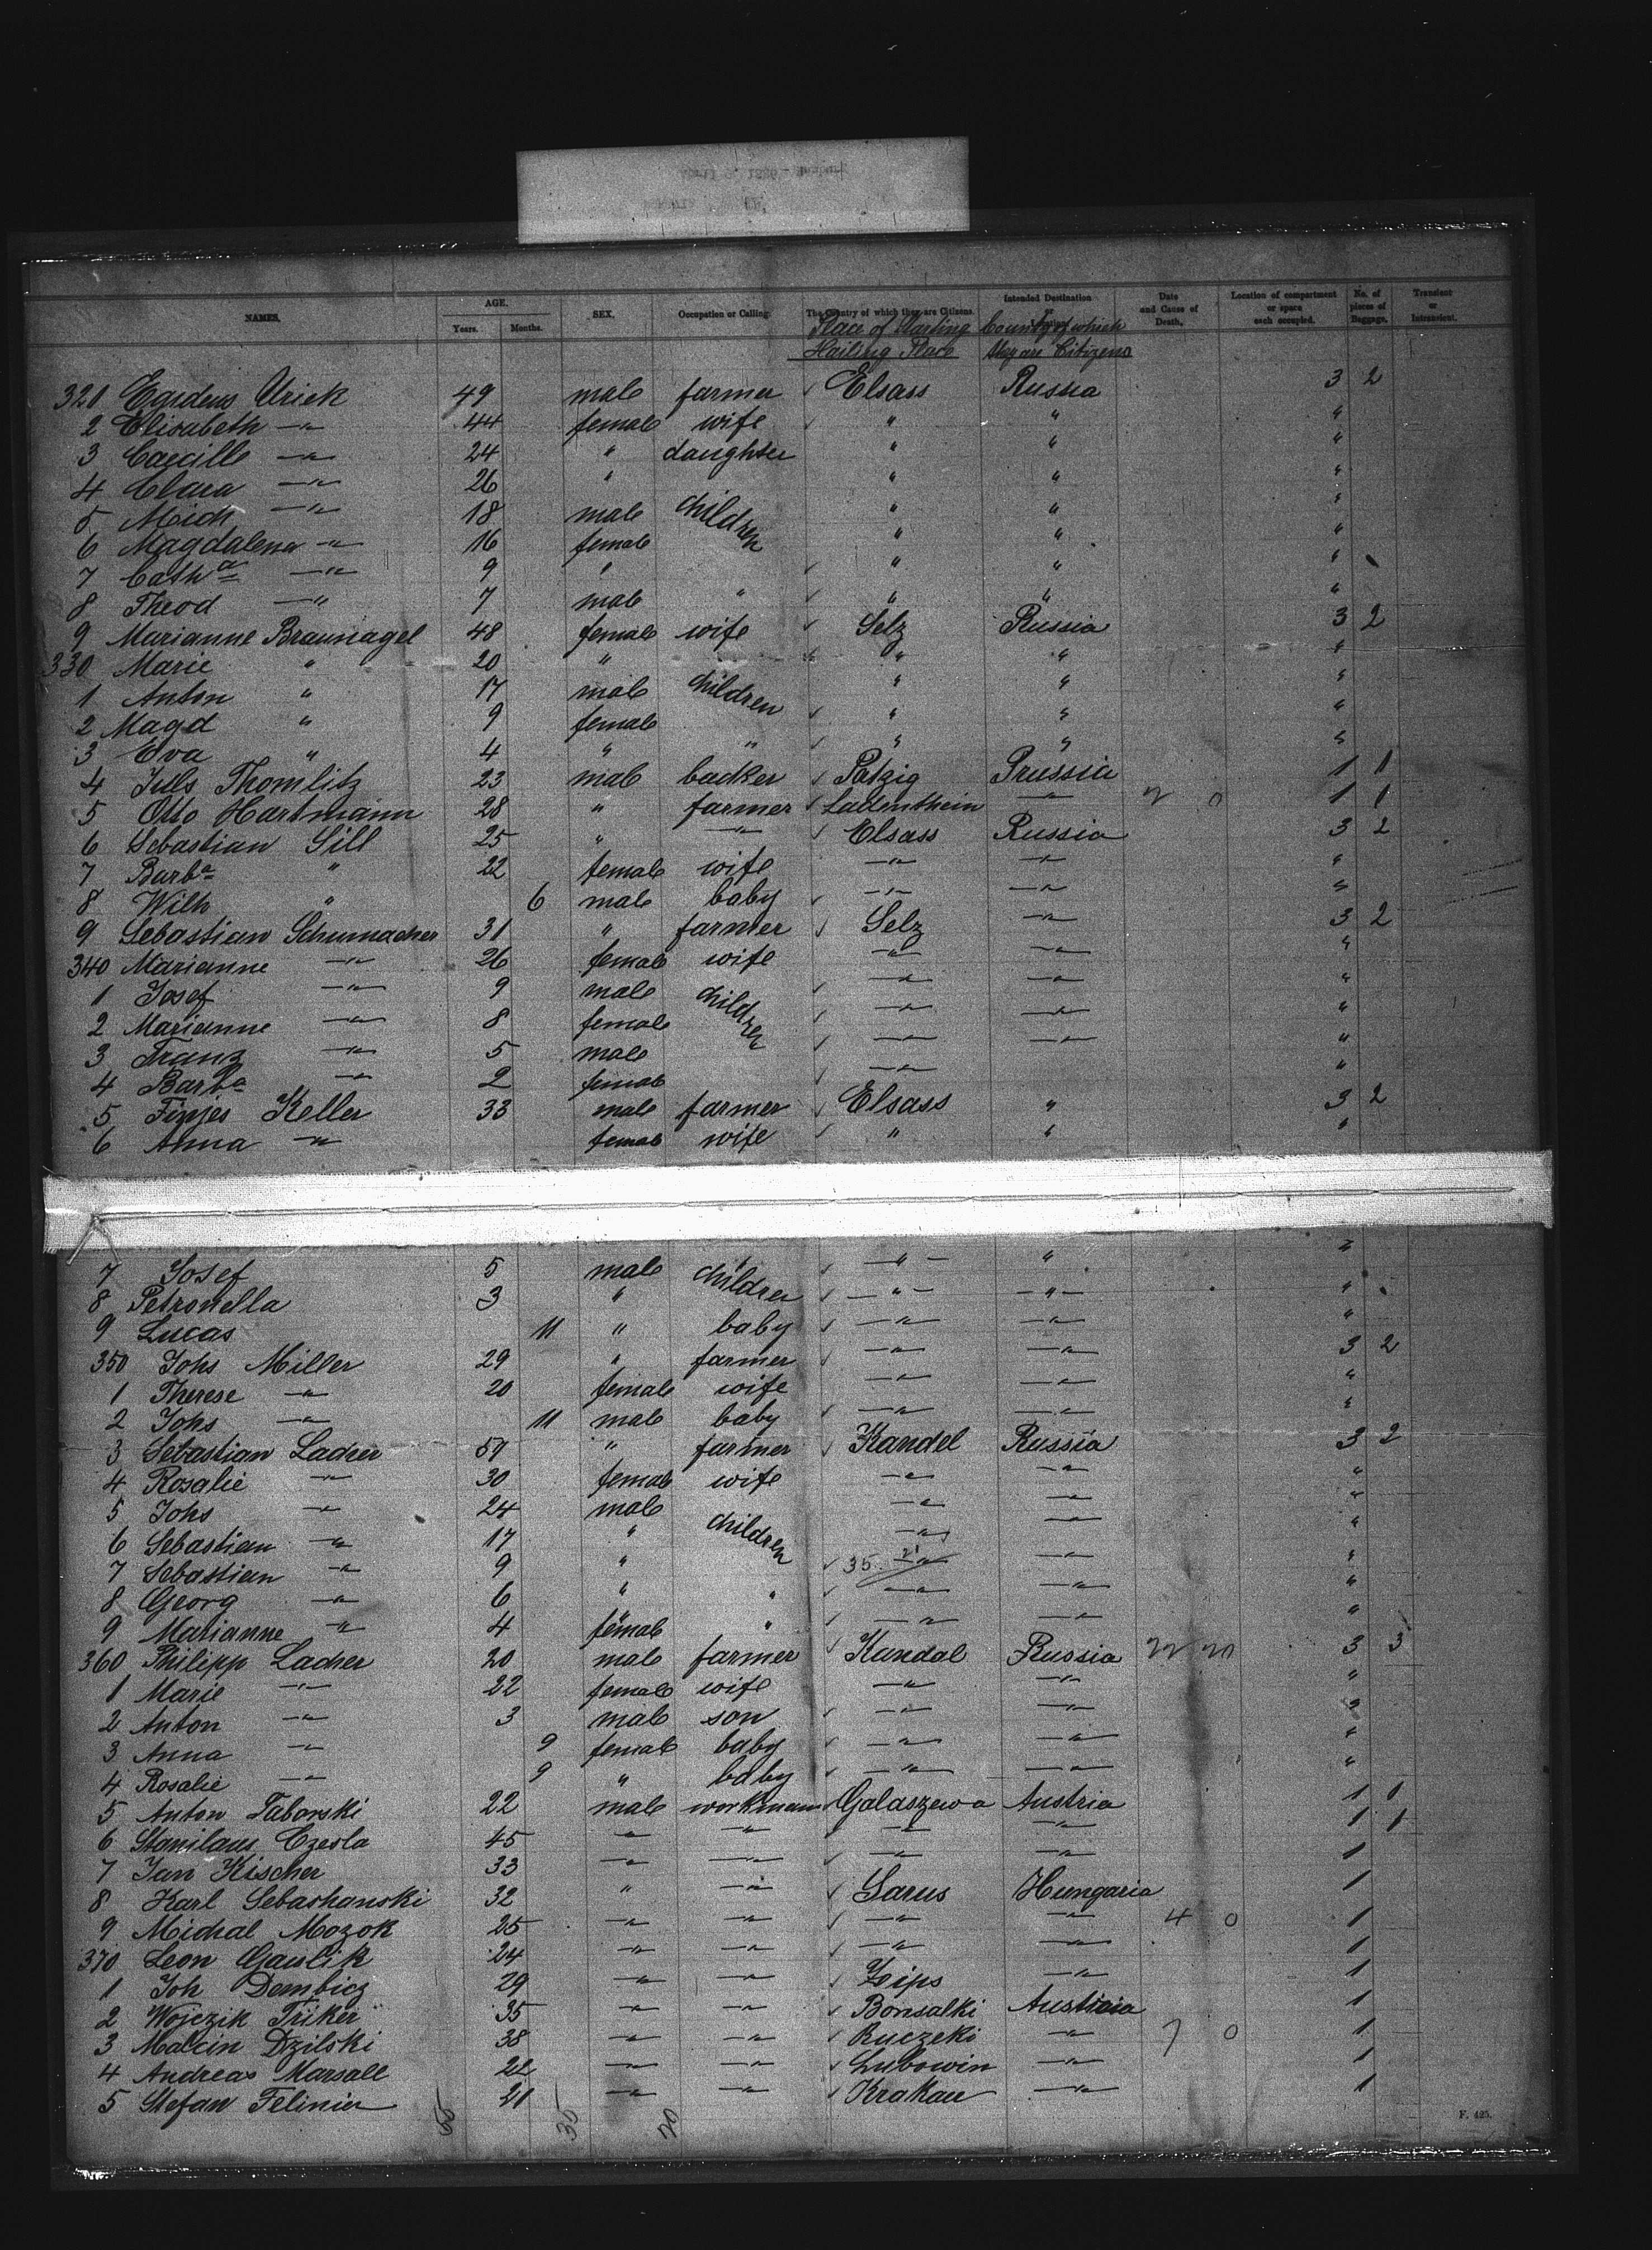 NAMES. AGE. Years. Months. SEX. Occupation or Calling. The Country of which they are Citizens. Intended Destination or Date and Cause of Death. Location of compartment or space each occupied. No. of pieces of Baggage. Transient or Intransient.
Place of Starting Country of which
Hailing Place they are Citizens
321 Urick 49 male farmer Elsass Russia 3 2
2 Elisabeth —"— 44 female wife " " "
3 Caecille —"— 24 " daughter " " "
4 Clara —"— 26 " " " "
5 Mich —"— 18 male children " " "
6 Magdalena —"— 16 female " " "
7 Cath a —"— 9 " " " "
8 Theod —"— 7 male " " " "
9 Marianne Braunagel 48 female wife Selz Russia 3 2
330 Marie " 20 " " " "
1 Anton " 17 male children " " "
2 Magd " 9 female " " "
3 Eva " 4 " " " " "
4 Thomlitz 23 male backer Patzig Prussia 1 1
5 Otto Hartmann 28 " farmer Ladenthein —"— 2 0 1 1
6 Sebastian Sill 25 " —"— Elsass Russia 3 2
7 Barba " 22 female wife —"— —"— "
8 Wilh " 6 male baby —"— —"— "
9 Sebastian Schumacher 31 " farmer Selz —"— 3 2
340 Marianne —"— 26 female wife —"— —"— "
1 Josef —"— 9 male children —"— —"— "
2 Marianne —"— 8 female —"— —"— "
3 Franz —"— 5 male —"— —"— "
4 Barba —"— 2 female —"— "
5 Keller 33 male farmer Elsass " 3 2
6 Anna —"— female wife " " "
7 Josef 5 male children —"— " "
8 Petronella 3 " —"— —"— "
9 Lucas 11 " baby —"— —"— "
350 Johs Miller 29 " farmer —"— —"— 3 2
1 Therese —"— 20 female wife —"— —"— "
2 Johs —"— 11 male baby —"— —"— "
3 Sebastian Lacher 57 " farmer Kandel Russia 3 2
4 Rosalie —"— 30 female wife —"— —"— "
5 Johs —"— 24 male —"— —"— "
6 Sebastian —"— 17 " children —"— —"— "
7 Sebastian —"— 9 " 35 —"— —"— "
8 Georg —"— 6 " " —"— —"— "
9 Marianne —"— 4 female " —"— —"— "
360 Philipp Lacher 20 male farmer Kandal Russia 22 20 3 3
1 Marie —"— 22 female wife —"— —"— "
2 Anton —"— 3 male son —"— —"— "
3 Anna —"— 9 female baby —"— —"— "
4 Rosalie —"— 9 " baby —"— —"— "
5 Anton Taborski 22 male workman Galaszewa Austria 1 1
6 Stanilaus Czesla 45 —"— —"— —"— —"— 1 1
7 Jan Kischer 33 —"— —"— —"— —"— 1
8 Karl Sebashanski 32 " —"— Sarus Hungaria 1
9 Michal Mozok 25 —"— —"— —"— —"— 4 0 1
370 Leon Gawlik 24 —"— —"— —"— —"— 1
1 Joh Dembicz 29 —"— —"— Zips —"— 1
2 Wojczik Triker 35 —"— —"— Bonsalki Austria 1
3 Malcin Dzilski 38 —"— —"— Ruczeki —"— 7 0 1
4 Andreas Marsall 22 —"— —"— Lubowin —"— 1
5 Stefan Felinier 21 —"— —"— Krakau —"— 1
35 20
F. 425.